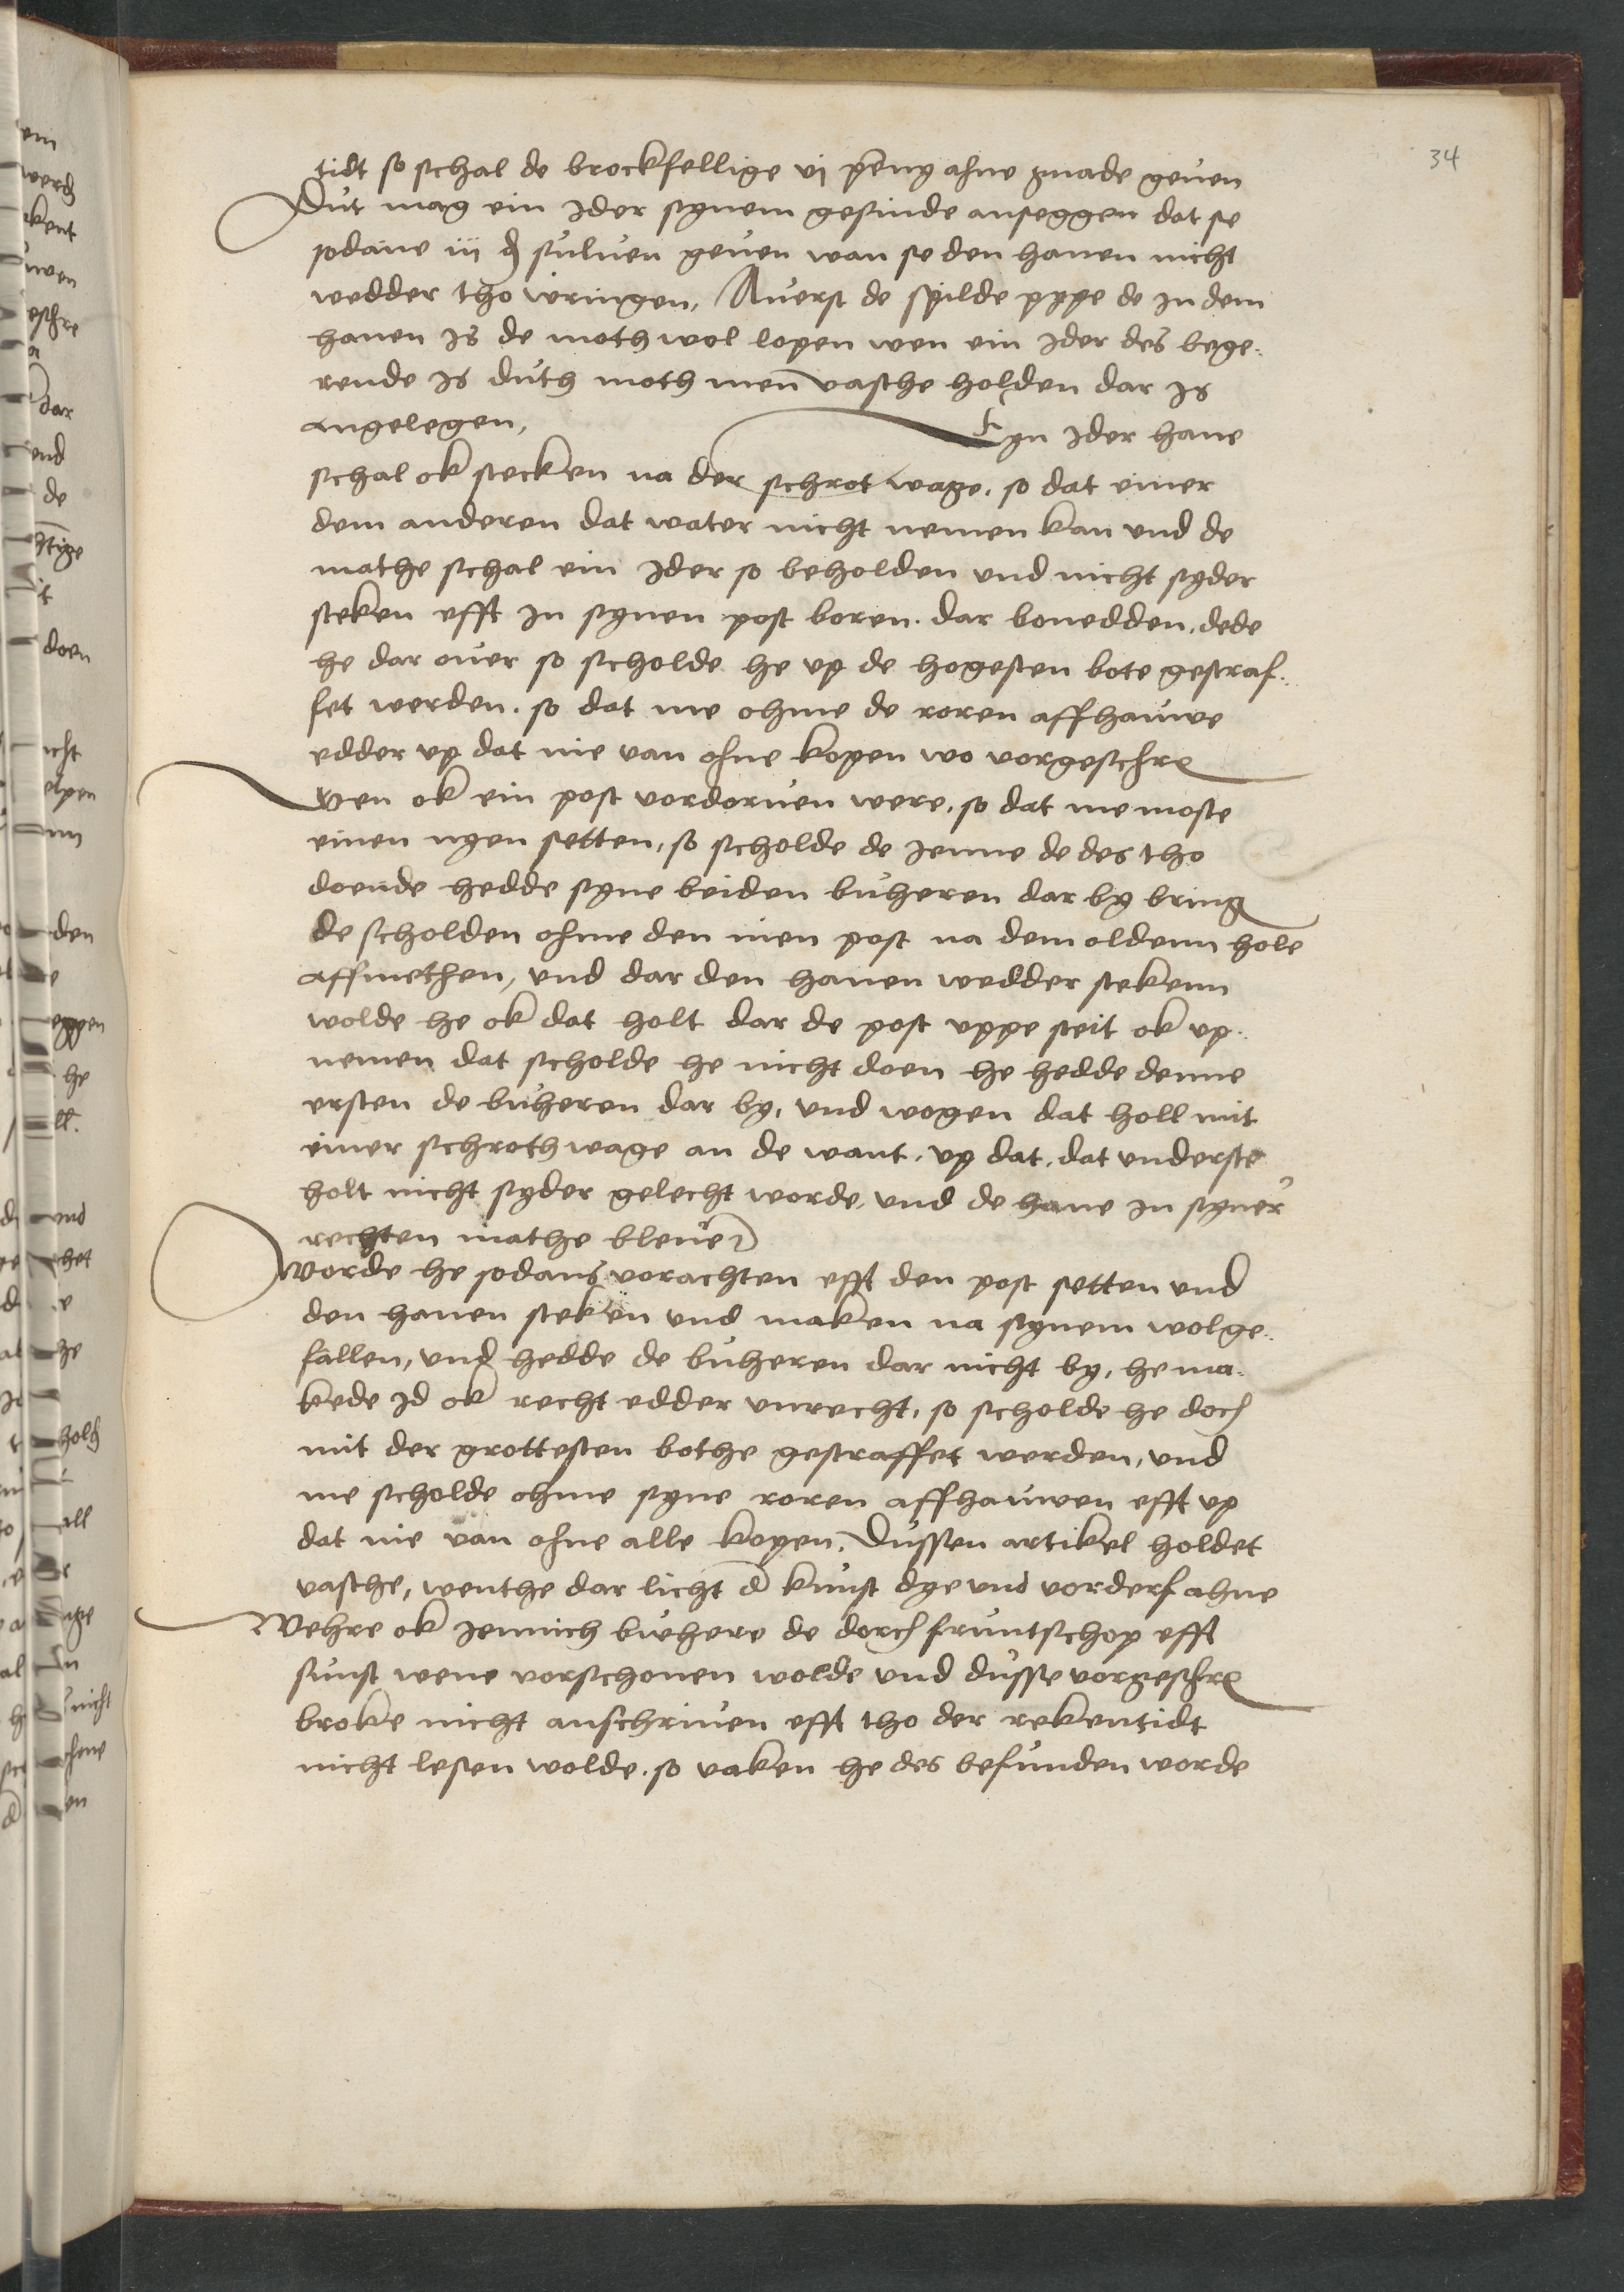 34
tidt so schal de brockfellige vj pēnyg ahne gnade geuen
Dut mag ein Jder synem gesinde anseggen dat se
sodane iij ₰ suluen geuen wan se den hanen nicht
wedder tho wringen, Auerst de spilde pype de in dem
hanen Js de moth wol lopen wen ein Jder des bege¬
rende Js duth moth men vasthe holden dar Js
angelegen,
Eyn Jder hane
schal ok stecken na der schrot wage. so dat einer
dem anderen dat water nicht nemen kan vnd de
mathe schal ein Jder so beholden vnd nicht syder
steken efft in synen post boren. dar benedden. dede
he dar ouer so scholde he vp de hogesten bote gestraf¬
fet werden. so dat me ohme de roren affhauwe
edder vp dat nie van ohne kopen wo vorgeschre
Wen ok ein post vordoruen were, so dat me moste
einen nyen setten, so scholde de Jenne de des tho
doende hedde syne beiden buheren dar by bring
de scholden ohme den nien post na dem oldenn hole
affmethen, vnd dar den hanen wedder stekenn
wolde he ok dat holt dar de post vppe steit ok vp¬
nemen dat scholde he nicht doen he hedde denne
ersten de buheren dar by, vnd wogen dat holl mit
einer schroth wage an de want, vp dat, dat vnderste
holt nicht syder gelecht worde, vnd de hane in syner
rechten mathe bleue
Worde he sodans vorachten efft den post setten vnd
den hanen steken vnd maken na synem wolge¬
fallen, vnd hedde de buheren dar nicht by, he ma¬
kede Jd ok recht edder vnrecht, so scholde he doch
mit der grottesten bothe gestraffet werden, vnd
me scholde ohme syne roren affhauwen efft vp
dat nie van ohne alle kopen. Dussen artikel holdet
vasthe, wenthe dar licht d kunst dye vnd vorderf ahne
Wehre ok Jennich buhere de dorch fruntschop efft
sunst wene vorschonen wolde vnd dusse vorgeschre
broke nicht anschriuen efft tho der rekentidt
nicht lesen wolde. so vaken he des befunden worde